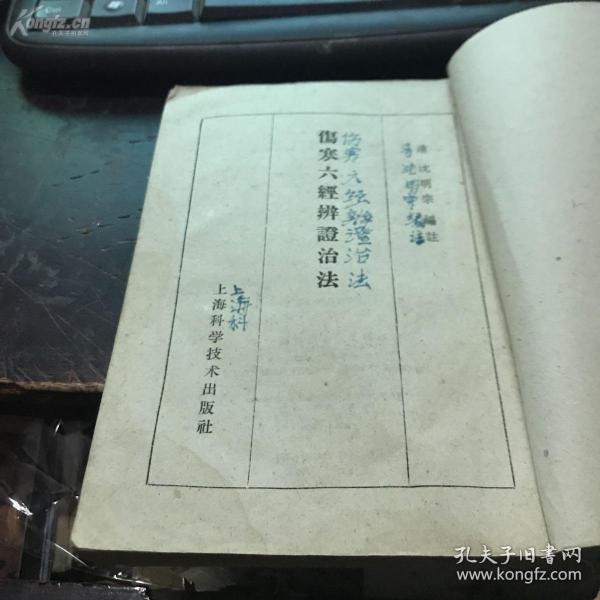 清 沈明宗 編註
傷寒六經辨證治法
伤寒六经
治法
上海科学技术出版社
上海科
Kongfz.cn
孔夫子旧书网
孔夫子旧书网
www.kongfz.com